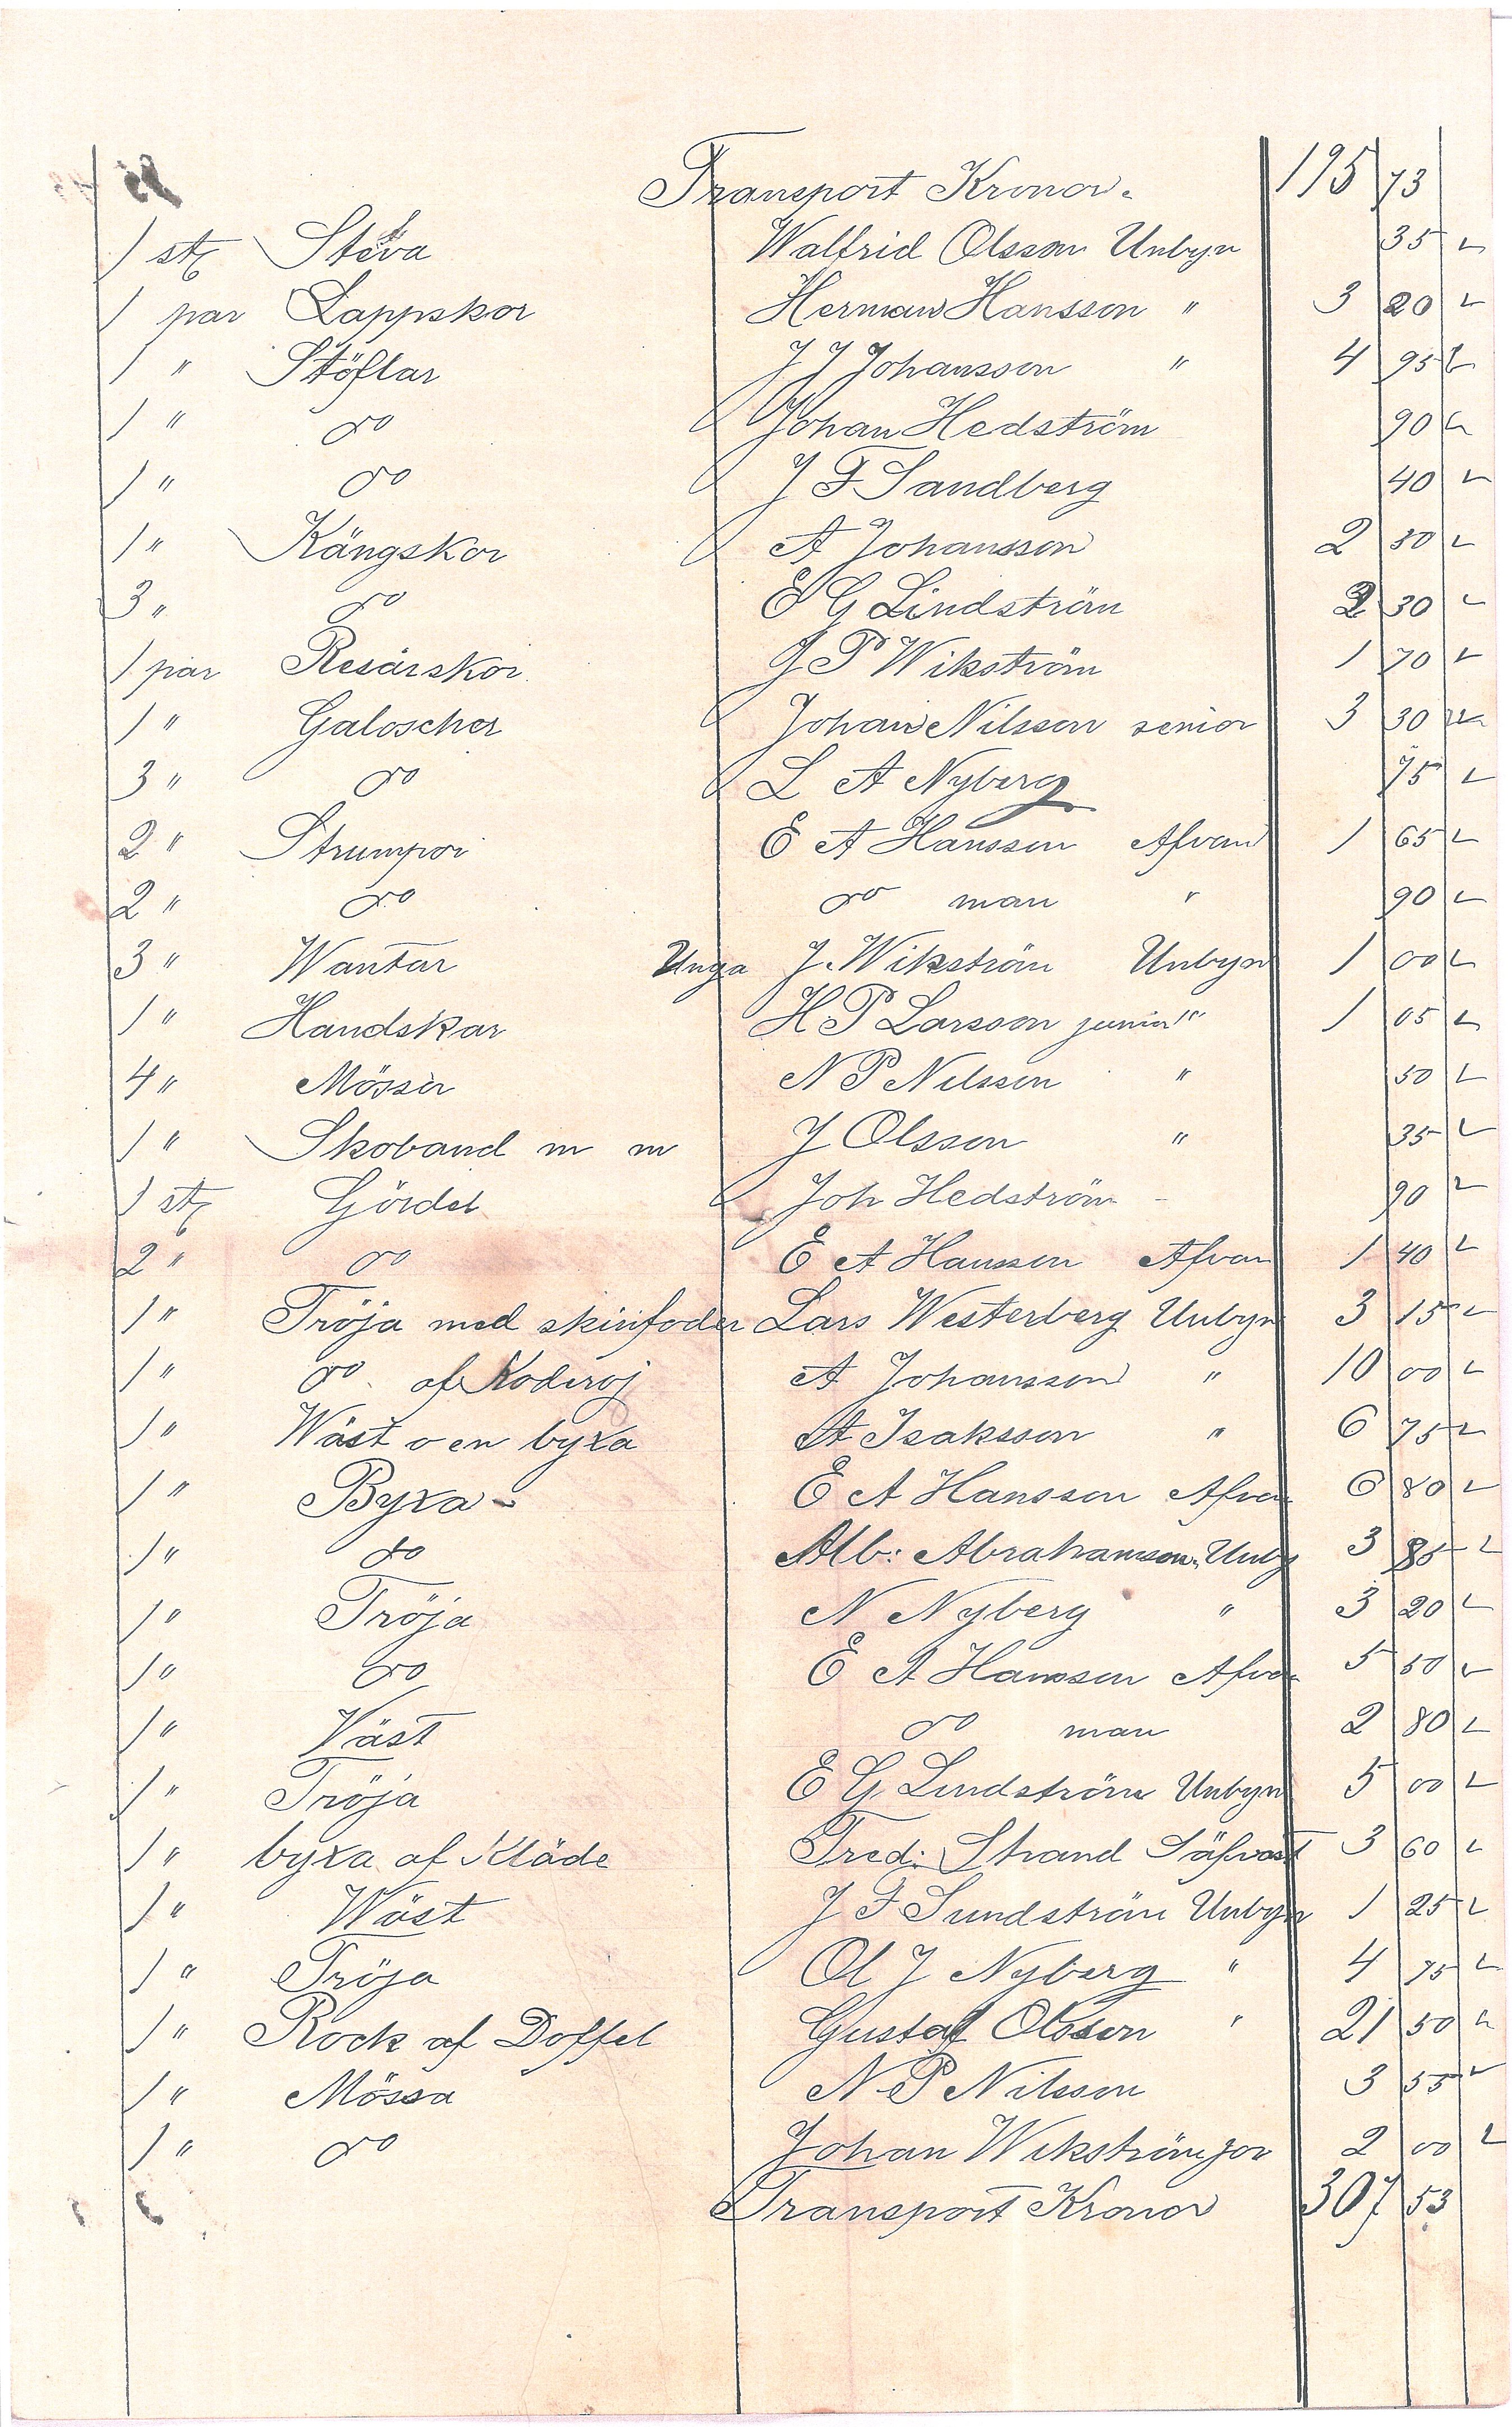 Transport Kronor. 195 73
1 st Stäva Walfrid Olsson Unbyn 35
1 par Lappskor Herman Hansson " 3 20
1 " Stöflar J J Johansson " 4 95
1 " do Johan Hedström 90
1 " do J F Sandberg 40
1 " Kängskor A Johansson 2 30
3 " do E G Lindström 2 30
1 par Resårskor J P Wikström 1 70
1 " Galoscher Johan Nilsson senior 3 30
3 " do L A Nyberg 75
2 " Strumpor E A Hansson Afvan 1 65
2 " do do man " 90
3 " Wantar Unga J. Wikström Unbyn 1 00
1 " Handskar H P Larsson junior " 1 05
4 " Mössor N P Nilsson " 50
1 " Skoband m m J Olsson " 35
1 st Gördel Joh Hedström 90
2 " do E A Hansson Afvan 1 40
1 " Tröja med skinfoder Lars Westerberg Unbyn 3 15
1 " do af A Johansson " 10 00
1 " Wäst o en byxa A Isaksson " 6 75
1 " Byxa E A Hansson Afvan 6 80
1 " do Alb: Abrahamson. Unby 3 85
1 " Tröja N Nyberg " 3 20
1 " do E A Hansson Afvan 5 50
1 " Väst do man 2 80
1 " Tröja E G Lindström Unbyn 5 00
1 " byxa af Kläde Fred: Strand Säfvast 3 60
1 " Wäst J F Sundström Unbyn 1 25
1 " Tröja Ol J Nyberg " 4 75
1 " Rock af Doffel Gustaf Olsson " 21 50
1 " Mössa N P Nilsson 3 55
1 " do Johan Wikström jor 2 00
Transport Kronor 307 53